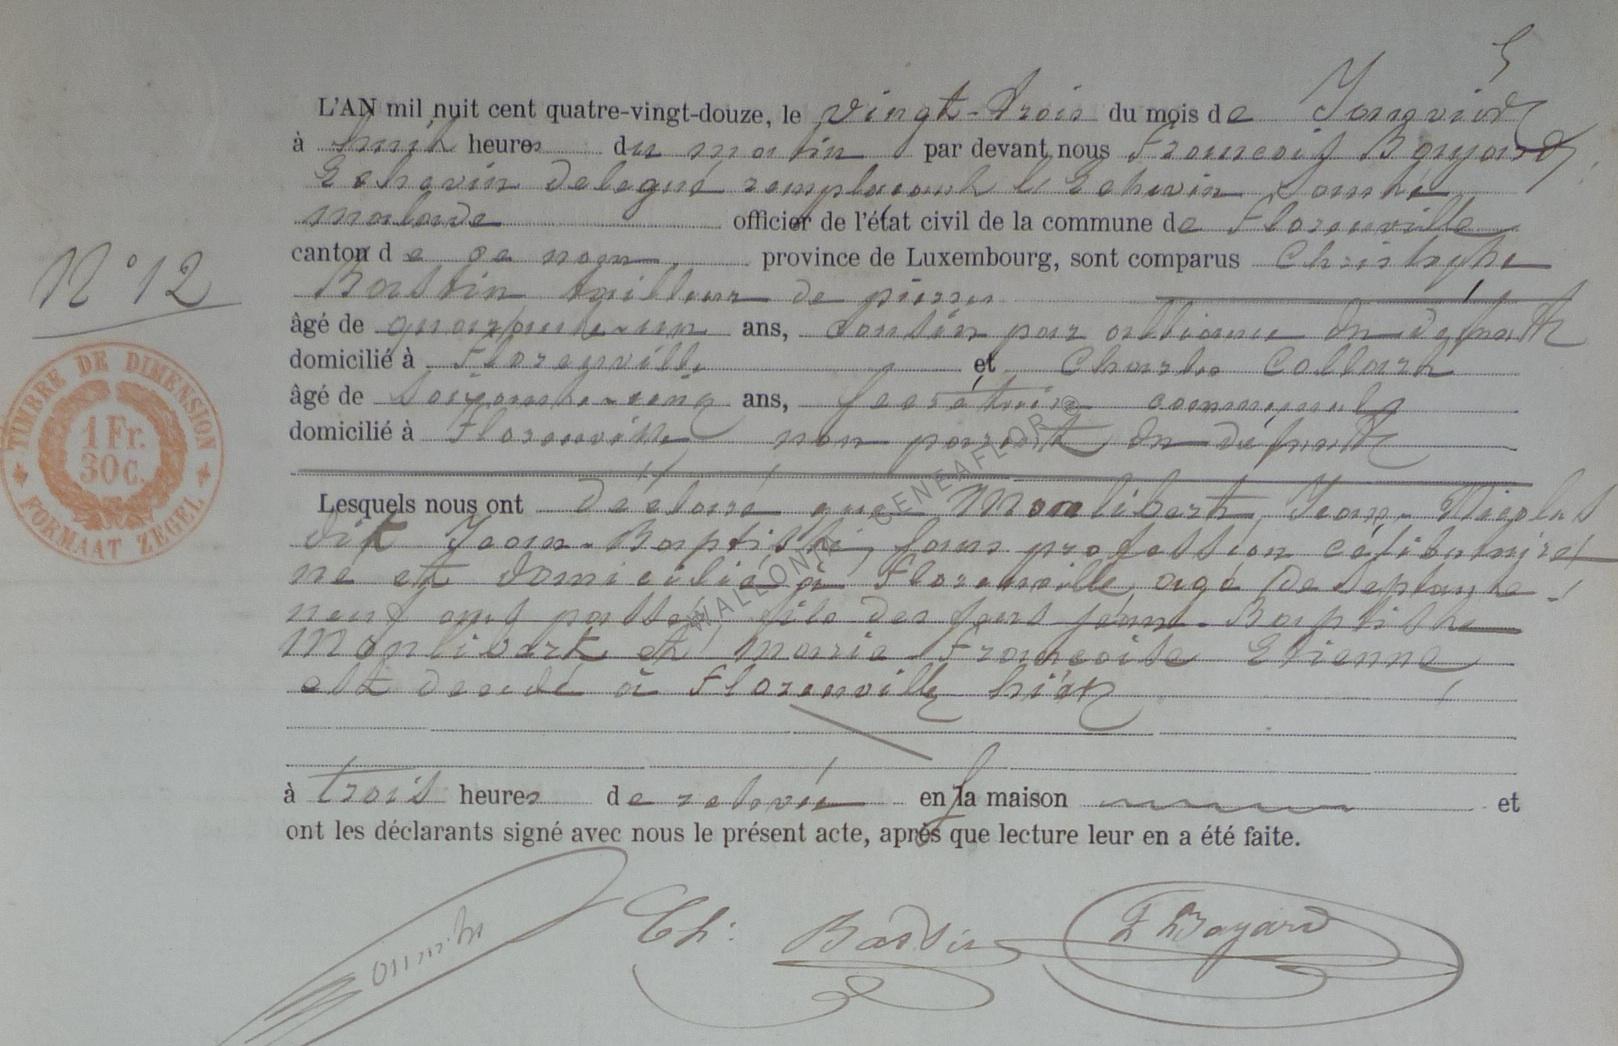 5
L'AN mil huit cent quatre-vingt-douze, le vingt-trois du mois de Janvier
à huit heures du matin par devant nous François Bayard
Echevin delegué remplacant l'Echevin
malade officier de l'état civil de la commune de Florenville
canton de ce nom, province de Luxembourg, sont comparus Christophe
Bastin tailleur de pierres
âgé de quarante-un ans, Cousin par alliance du défunt
domicilié à Florenville et Charles Collard
âgé de soixante-cinq ans, secrétaire communal
domicilié à Florenville non parent du défunt
N° 12
TIMBRE DE DIMENSION
1 Fr.
30c.
FORMAAT ZEGEL
Lesquels nous ont déclaré que Monlibert, Jean-Nicolas
dit Jean-Baptiste, sans profession célibataire
né et domicilié à Florenville, agé de septante-
neuf ans passés fils des feus Jean-Baptiste
Monlibert et Marie Françoise Etienne
est décédé à Florenville hier
à trois heures de relevée en la maison et
ont les déclarants signé avec nous le présent acte, après que lecture leur en a été faite.
Ch. Bastin F Bayard
WALLONIE GENEAFLOR ©